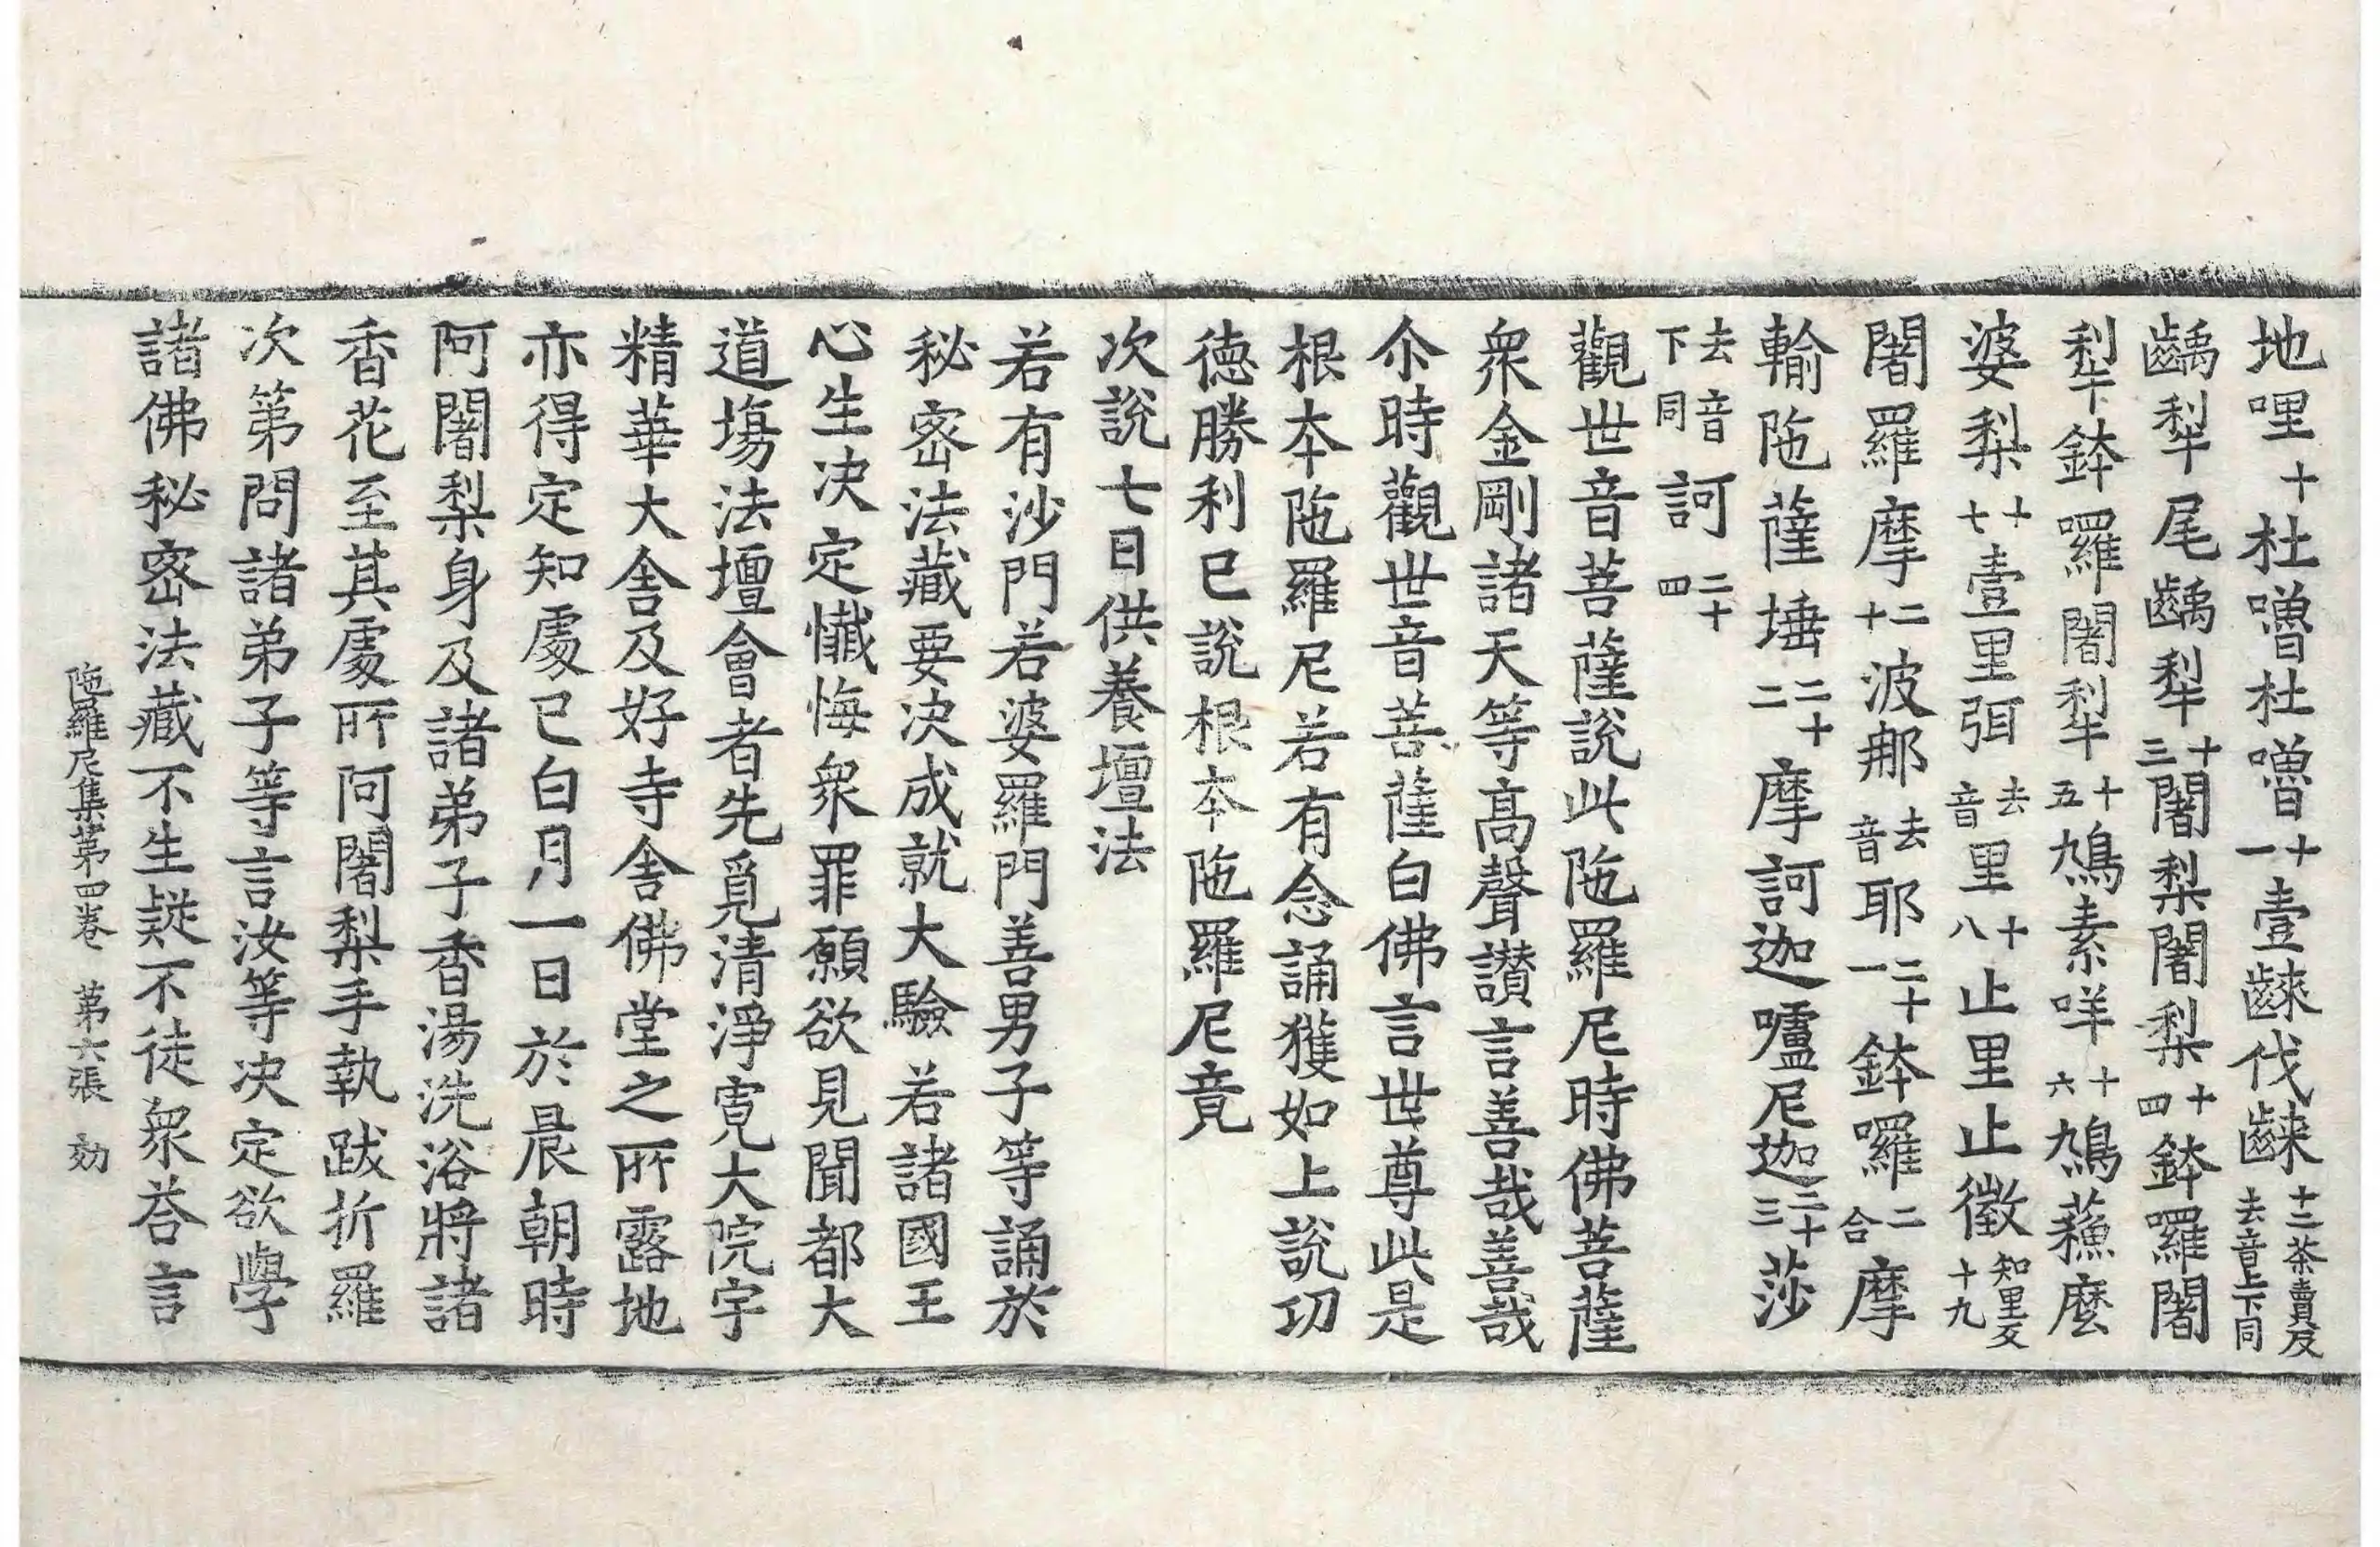 地哩十杜嚕杜嚕十一壹𪘨伐𪘨十二茶賣反去音上下同
齲犁尾齲犁十三闍梨闍梨十四鉢囉闍
犁鉢囉闍犁十五鳩素咩十六鳩蘓麼
婆梨十七壹里弭去音里十八止里止徵知里反十九
闍羅摩二十波郍去音耶二十一鉢囉二合摩
輸陁薩埵二十二摩訶迦嚧尼迦二十三莎
去音下同訶二十四
觀世音菩薩說此陁羅尼時佛菩薩
衆金剛諸天等高聲讃言善哉善哉
尒時觀世音菩薩白佛言世尊此是
根本陁羅尼若有念誦獲如上說功
德勝利已說根本陁羅尼竟
次說七日供養壇法
若有沙門若婆羅門善男子等誦於
秘密法藏要决成就大驗若諸國王
心生决定懺悔衆罪願欲見聞都大
道場法壇會者先覓清淨寬大院宇
精華大舍及好寺舍佛堂之所露地
亦得定知處已白月一日於晨朝時
阿闍梨身及諸弟子香湯洗浴將諸
香花至其處所阿闍梨手執跋折羅
次第問諸弟子等言汝等决定欲學
諸佛秘密法藏不生疑不徒衆荅言
陁羅尼集第四卷　第六張　効